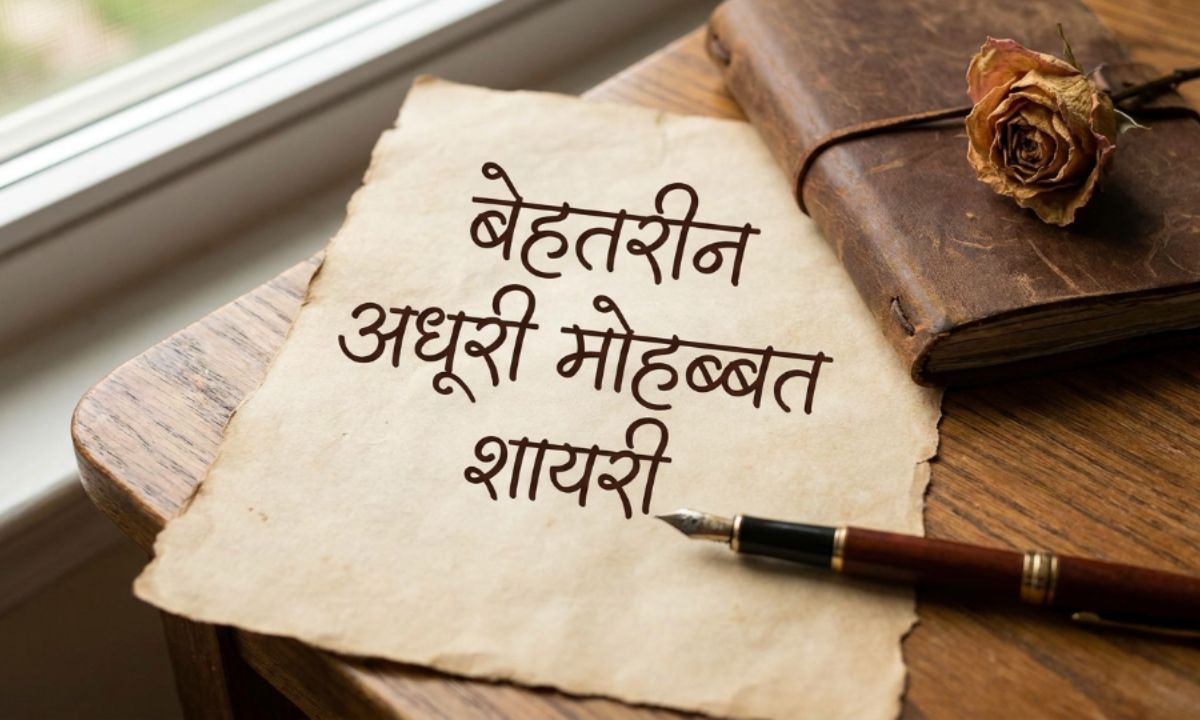 बेहतरीन
अधूरी मोहब्बत
शायरी